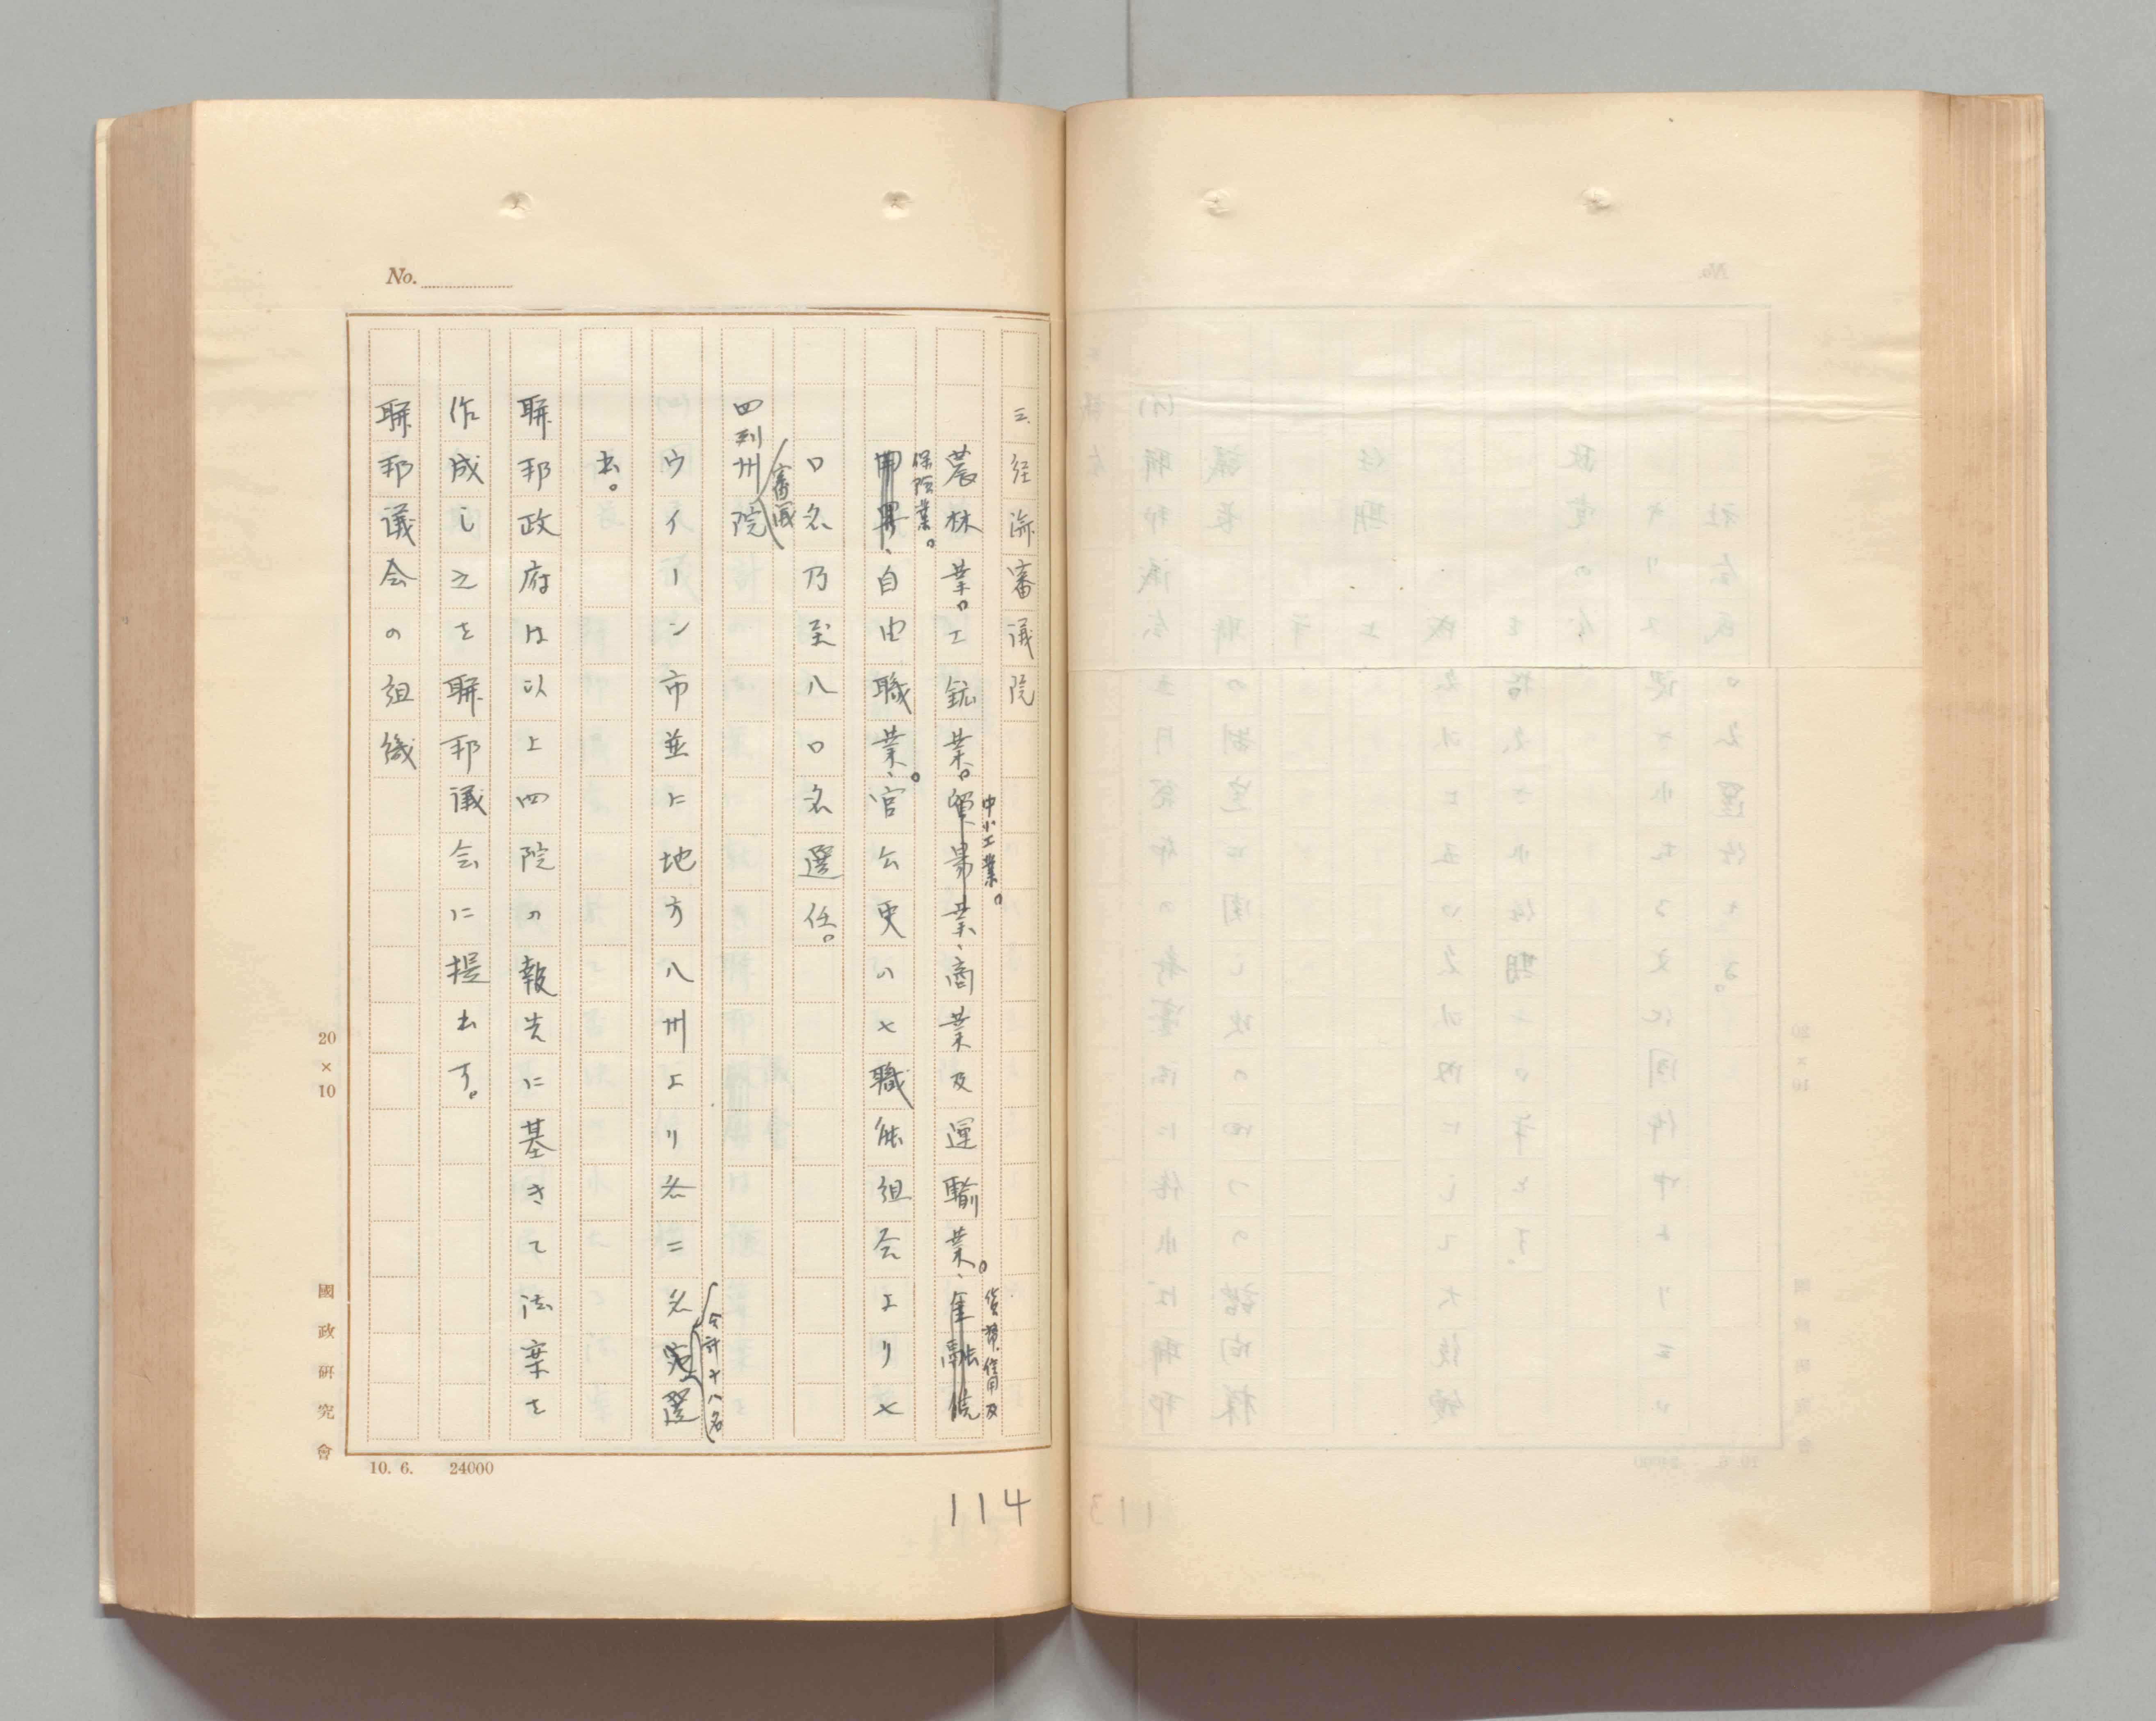 No.
三、経済審議院
農林業。工鉱業。貿易業、商業及運輸業。、金融信
中小工業。
貨幣、信用及
保険業。
用界、自由職業、。官公吏の七職能組合より七
〇名乃至八〇名選任。
四列州院
(審議
ウイーン市並に地方八州より各二名定選
(合計十八名)
出。
聯邦政府は以上四院の報告に基きて法案を
作成し之を聯邦議会に提出す。
聯邦議会の組織
20×10
國政研究會
10. 6. 24000
114